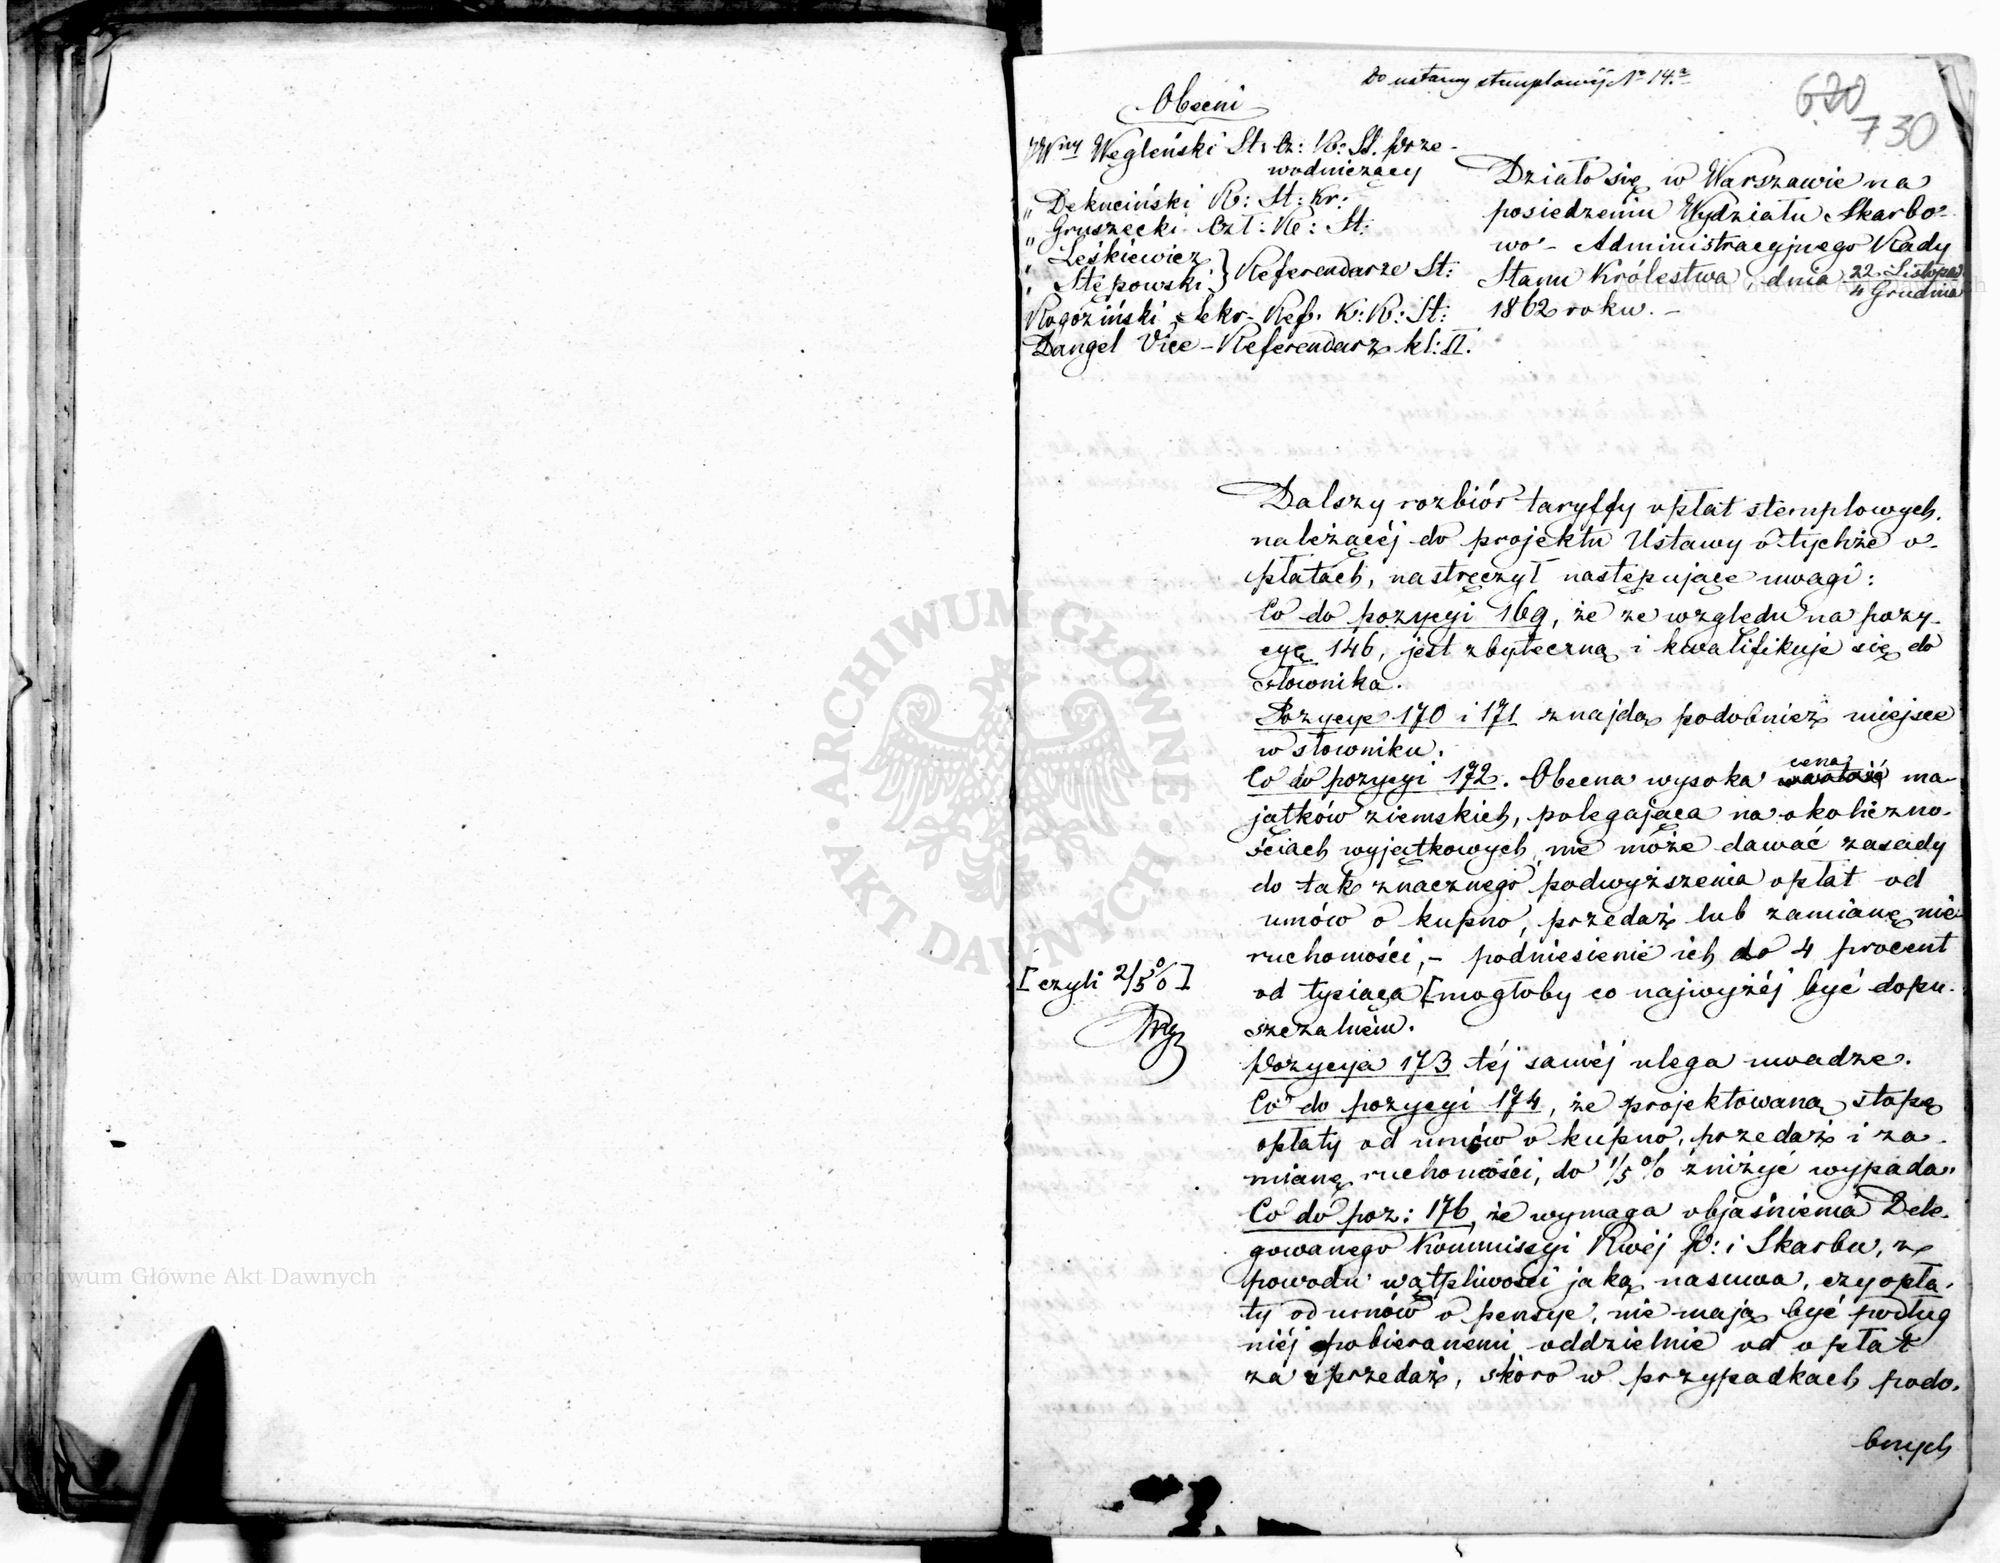 Do ustawy stemplowéj Nr 14.a
620
730
Obecni
JWny Węgleński St: Cz: R: St. prze-
wodniczący
„ Dekuciński R: St: Kr:
„ Gruszecki Czł: R: St:
„ Leśkiewicz
„ Stępowski } Referendarze St:
Rogoziński Sekr- Ref. K: R: St:
Dangel Vice-Referendarz kl: II.
Działo się w Warszawie na
posiedzeniu Wydziału Skarbo-
wo-Administracyjnego Rady
Stanu Królestwa dnia 22 Listopad.
4 Grudnia
1862 roku. -
Dalszy rozbiór taryffy opłat stemplowych,
należącéj do projektu Ustawy o tychże o-
płatach, nastręczył następujące uwagi:
Co do pozycyi 169, że ze względu na pozy-
cyę 146, jest zbyteczną i kwalifikuje się do
słownika.
Pozycye 170 i 171 znajdą podobnież miejsce
w słowniku.
Co do pozycyi 172. Obecna wysoka wartość cena ma-
jątków ziemskich, polegająca na okoliczno-
ściach wyjątkowych, nie może dawać zasady
do tak znacznego podwyższenia opłat od
umów o kupno, przedaż lub zamianę nie-
ruchomości, - podniesienie ich do 4 procent
od tysiąca [ mogłoby co najwyżéj być dopu-
szczalném.
[ czyli 2/5 % ]
Pozycya 173 téj saméj ulega uwadze.
Co do pozycyi 174, że projektowaną stopę
opłaty od umów o kupno, przedaż i za-
mianę ruchomości, do 1/5 % zniżyć wypada.
Co do poz: 176, że wymaga objaśnienia Dele-
gowanego Kommissyi Rwéj P: i Skarbu, z
powodu wątpliwości jaką nasuwa, czy opła-
ty od umów o pensye, nie mają być podług
niéj pobieranemi oddzielnie od opłat
za sprzedaż, skoro w przypadkach podo-
bnych
ARCHIWUM GŁÓWNE AKT DAWNYCH
Archiwum Główne Akt Dawnych
Archiwum Główne Akt Dawnych